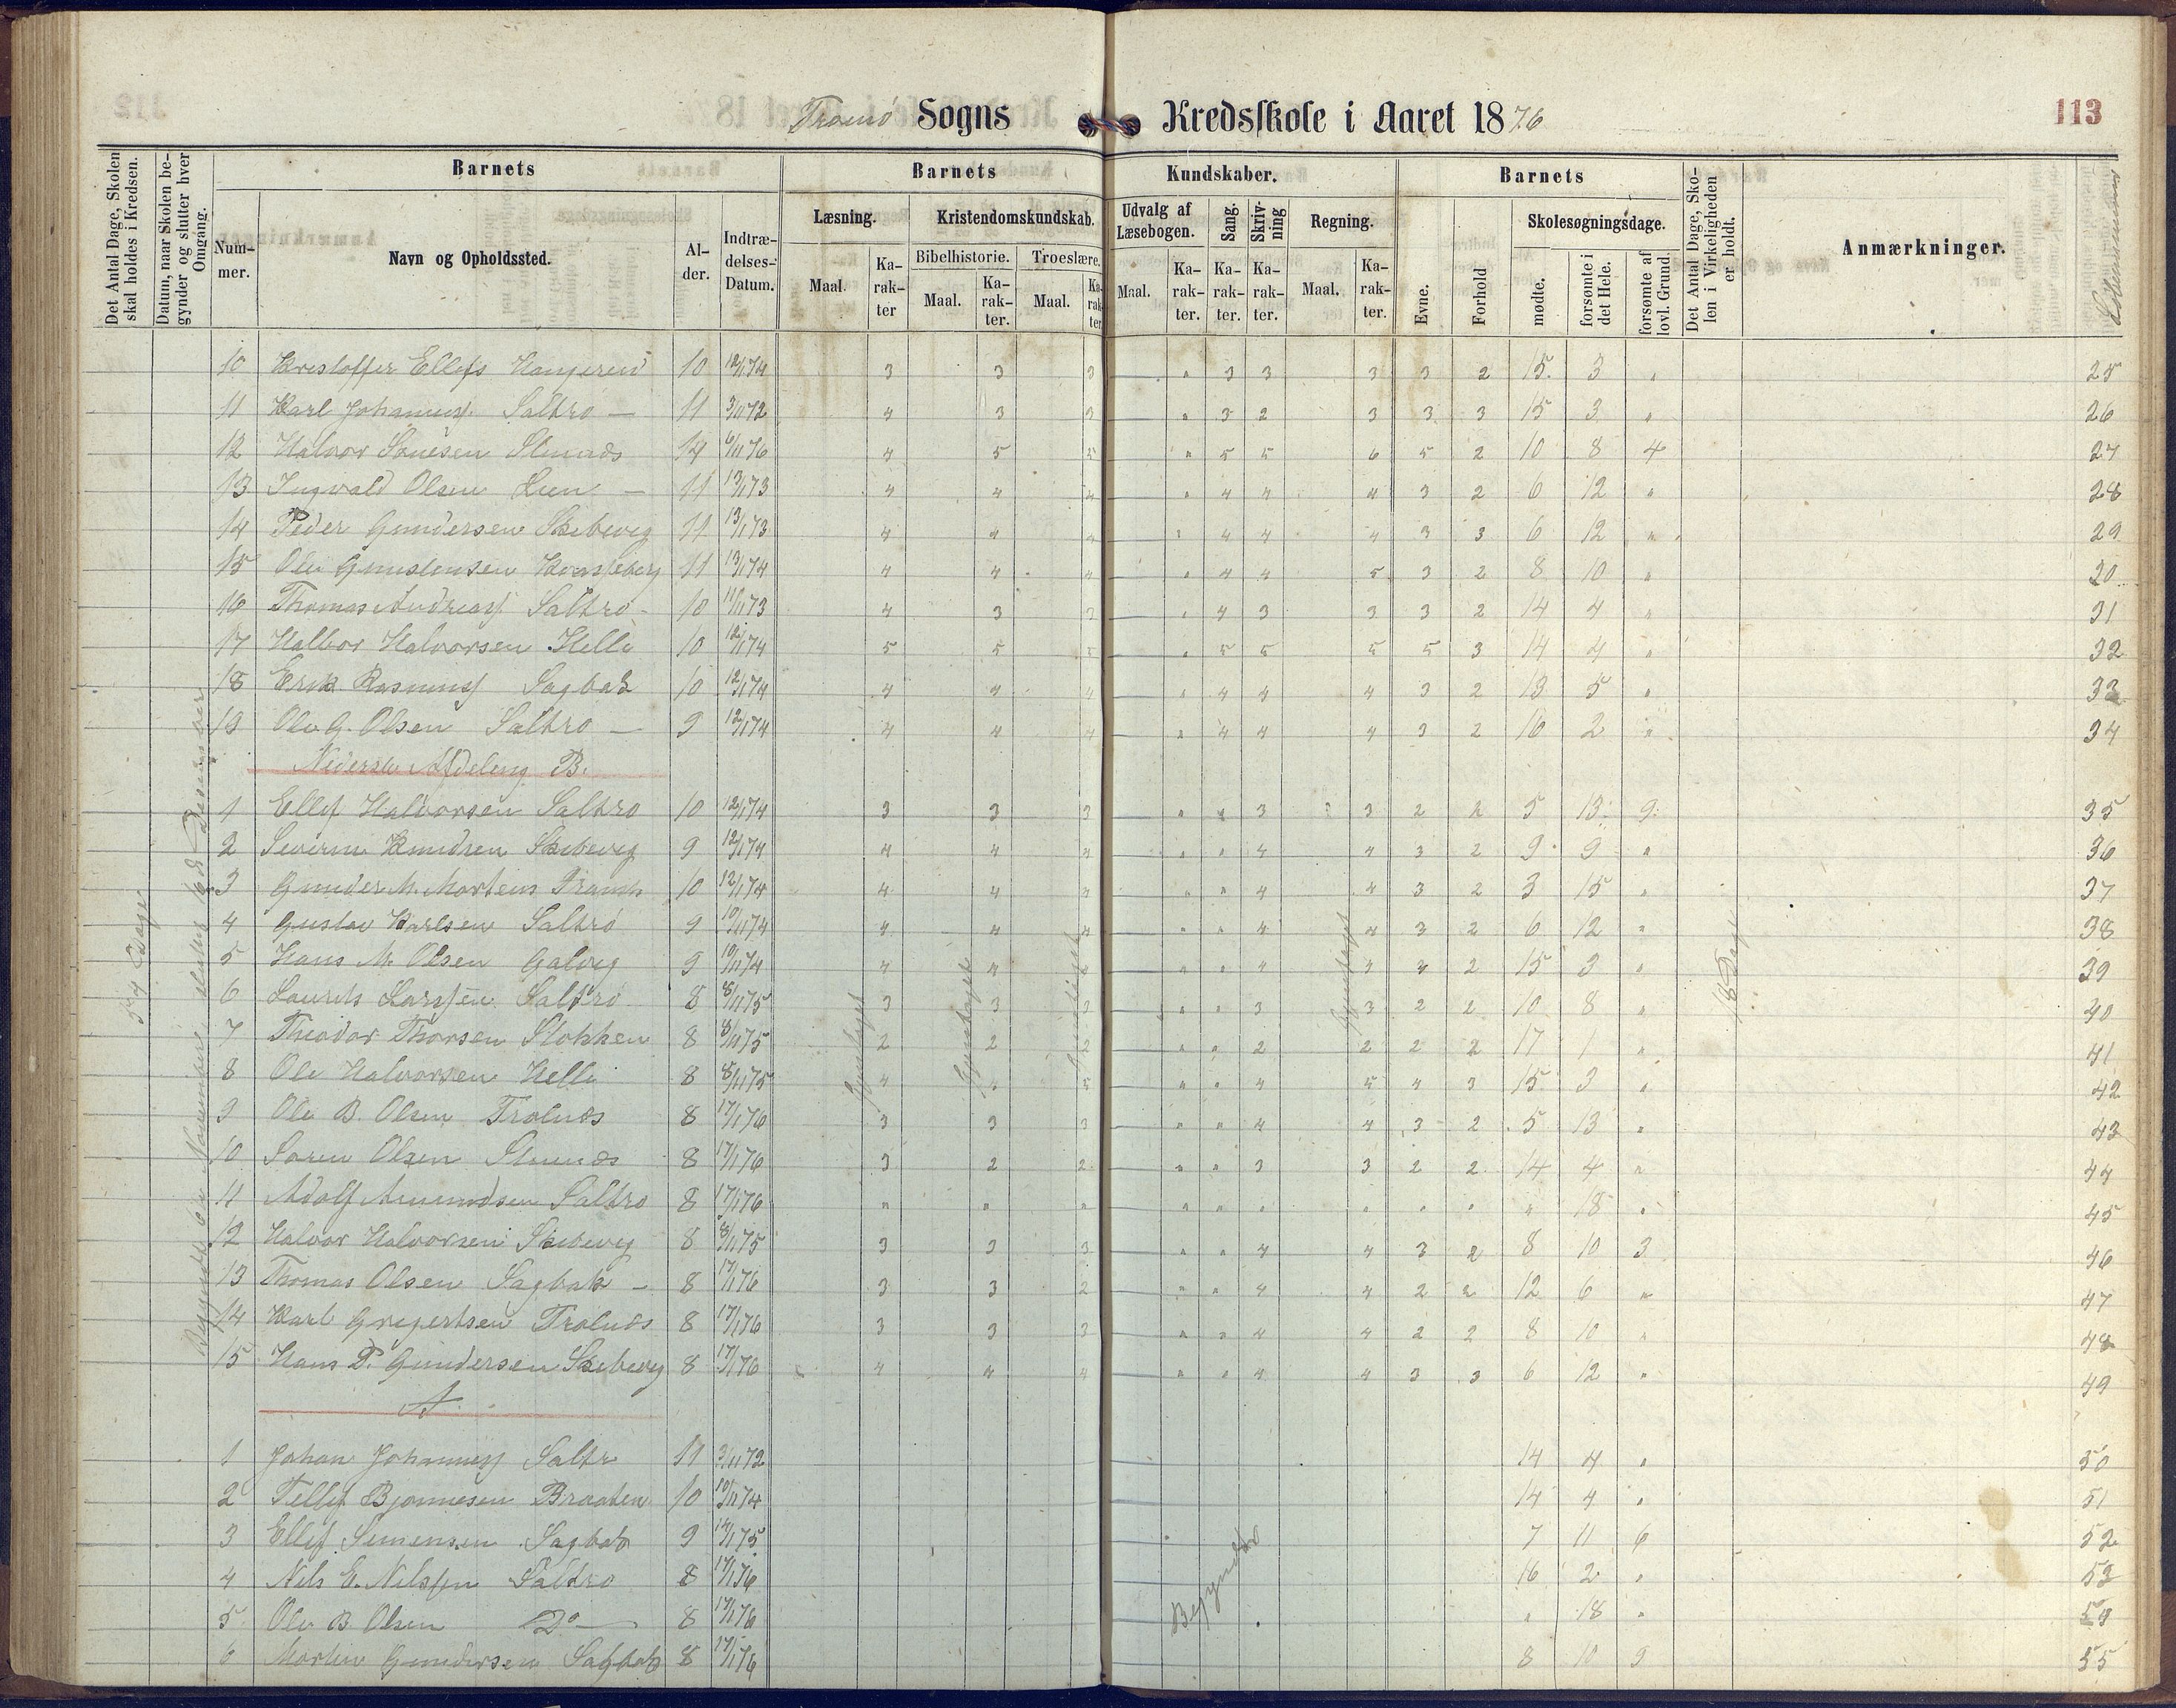 Tromö Sogns Kredsskole i Aaret 1876
113
Det Antal Dage, Skolen skal holdes i Kredsen.
Datum, naar Skolen begynder og slutter hver Omgang.
Barnets
Nummer.
Navn og Opholdssted.
Alder.
Indtrædelses-Datum.
Barnets Kundskaber.
Læsning.
Maal.
Karakter
Kristendomskundskab.
Bibelhistorie.
Maal.
Karakter.
Troeslære.
Maal.
Karakter
Udvalg af Læsebogen.
Maal.
Karakter.
Sang.
Karakter.
Skrivning
Karakter.
Regning.
Maal.
Karakter.
Barnets
Evne.
Forhold
Skolesøgningsdage.
mødte.
forsømte i det Hele.
forsømte af lovl. Grund.
Det Antal Dage, Skolen i Virkeligheden er holdt.
Anmærkninger.
10 Kristoffer Ellefs 10 12/1 74 3 3 3 " 3 3 3 3 2 15 3 " 25
11 Karl Johannes. Saltrö — 11 3/11 72 4 3 3 " 3 2 3 3 3 15 3 " 26
12 Halvor 14 6/11 76 4 5 5 " 5 5 6 5 2 10 8 4 27
13 Ingvald Olsen — 11 13/1 73 4 4 4 " 4 4 4 3 2 6 12 " 28
14 Peder Gundersen Skibevig 11 13/1 73 4 4 4 " 4 4 4 3 3 6 12 " 29
15 Ole 11 13/1 74 4 4 4 " 4 4 5 3 2 8 10 " 30
16 Thomas Andreas Saltrö - 10 11/11 73 4 3 3 " 4 3 3 3 2 14 4 " 31
17 Halvor Halvorsen Helle 10 12/1 74 5 5 5 " 5 5 5 5 3 14 4 " 32
18 Erik Rasmuss Sagbak 10 12/1 74 4 4 4 " 4 4 4 3 2 13 5 " 33
19 Ole G. Olsen Saltrö — 9 12/1 74 4 4 4 " 4 4 4 3 2 16 2 " 34
Nederste Afdeling B.
1 Ellef Halvorsen Saltrö 10 12/1 74 3 3 3 " " 3 3 2 2 5 13 9 35
2 Severin Knudsen Skibevig 9 12/1 74 4 4 4 " " 4 4 3 2 9 9 " 36
3 Gunder M. Mortens 10 12/1 74 4 4 4 " " 4 4 3 2 3 15 " 37
4 Gustav Karlsen Saltrö 9 10/11 74 4 4 4 " " 4 4 3 2 6 12 " 38
5 Hans M. Olsen Galvig 9 10/11 74 4 4 " " 4 2 15 3 " 39
6 Laurits Larssen Saltrö 8 8/11 75 3 3 3 " " 3 3 2 2 10 8 " 40
7 Theodor Thorsen Stokken 8 8/11 75 2 2 2 " " 2 2 2 2 17 1 " 41
8 Ole Halvorsen Helle 8 8/11 75 4 5 " " 4 5 4 3 15 3 " 42
9 Ole B. Olsen Tralnæs 8 17/1 76 3 3 3 " " 4 4 3 2 5 13 " 43
10 Sören Olsen 8 17/1 76 3 2 2 " " 3 3 2 2 14 4 " 44
11 Adolf Amundsen Saltrö 8 17/1 76 " " " " " " " " " " 18 " 45
12 Halvor Halvorsen Skibevig 8 8/11 75 3 3 3 " " 4 4 3 2 8 10 3 46
13 Thomas Olsen Sagbak — 8 17/1 76 3 3 2 " " 4 4 2 2 12 6 " 47
14 Karl Gregertsen Tralnæs 8 17/1 76 3 3 3 " " 4 4 2 2 8 10 " 48
15 Hans P. Gundersen Skibevig 8 17/1 76 4 4 4 " " 4 4 3 3 6 12 " 49
A
1 Johan Johannes Saltr 11 3/11 72 14 4 " 50
2 Tellef Bjornesen Braaten 10 10/11 74 14 4 " 51
3 Ellef Simensen Sagbak 9 75 7 11 6 52
4 Nils E. Nilssen Saltrö 8 17/1 76 16 2 " 53
5 Ole B. Olsen Do — 8 17/1 76 " 18 " 54
6 Martin Gundersen Sagbak 8 17/1 76 8 10 9 55
54 Dage
Begyndt 6te November sluttet 16de December
18 Dage